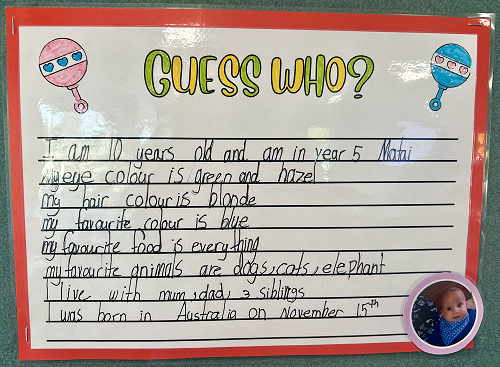 GUESS WHO?
I am 10 years old and am in year 5 Matai
My eye colour is green and hazel
my hair colour is blonde
my favourite colour is blue
my favourite food is everything
my favourite animals are dogs, cats, elephant
I live with mum, dad, 3 siblings
I was born in Australia on November 15th